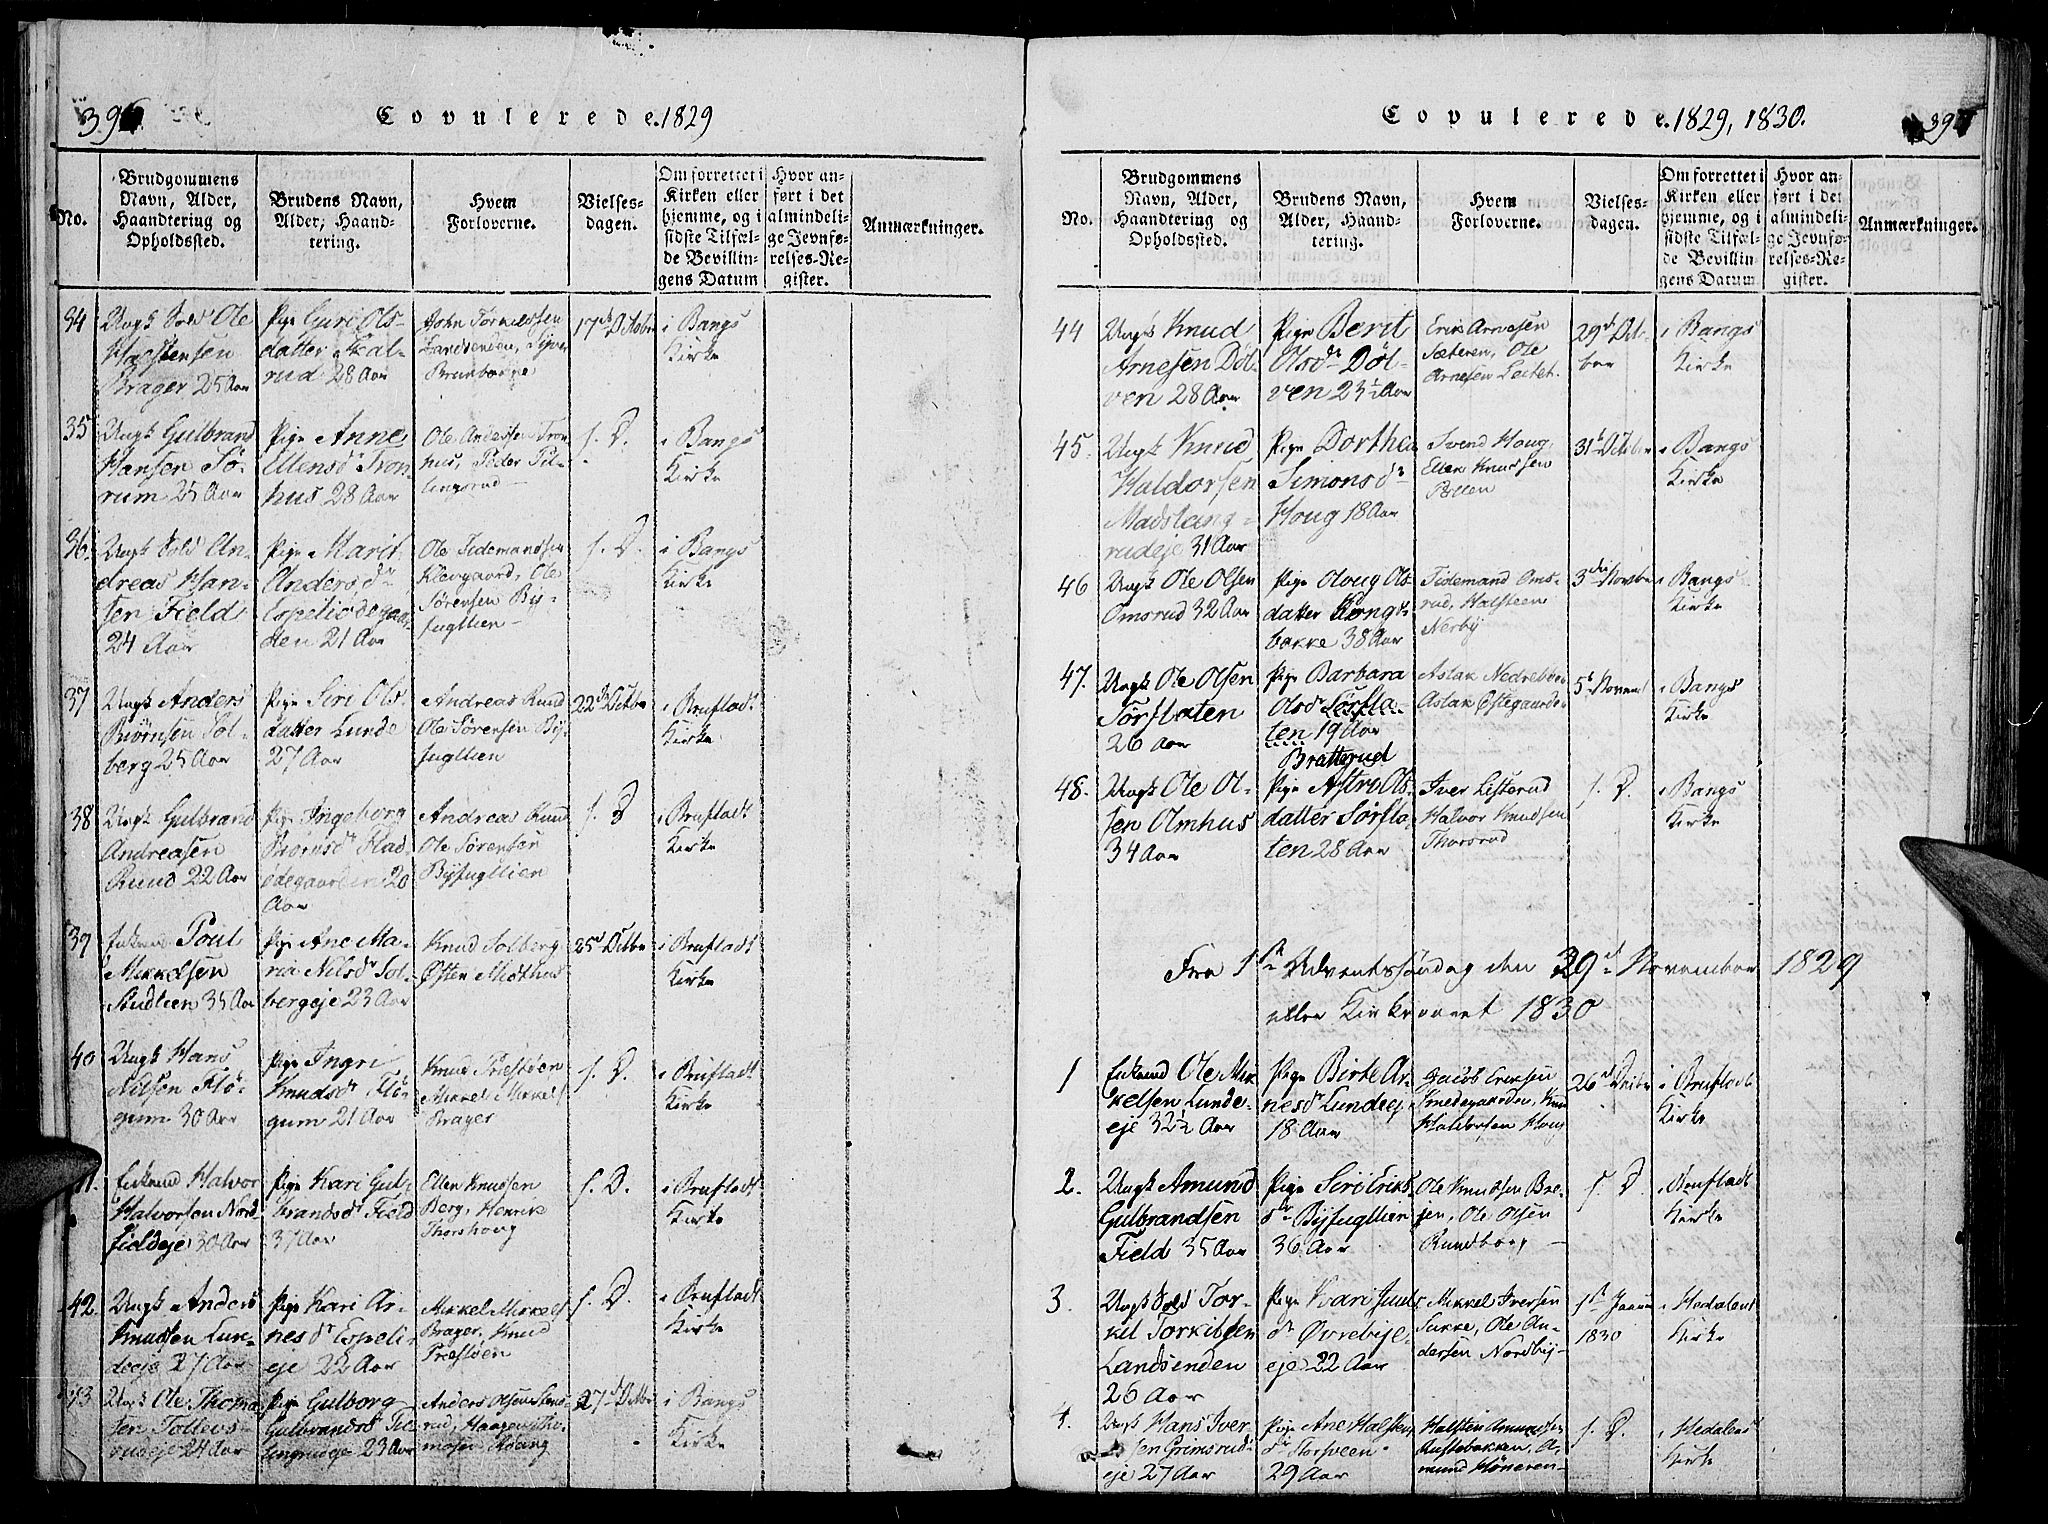 396
Copulerede. 1829
No.
Brudgommens
Navn, Alder,
Haandtering og
Opholdssted.
Brudens Navn,
Alder, Haand-
tering.
Hvem
Forloverne.
Vielses-
dagen.
Om forrettet i
Kirken eller
hjemme, og i
sidste Tilfæl-
de Bevillin-
gens Datum
Hvor an-
ført i det
almindeli-
ge Jevnfø-
relses-Re-
gister.
Anmærkninger.
34
Ungk Sold Ole
Halstensen
Brager 25 Aar
Pige Guri Ols-
datter Skal-
rud 28 Aar
John Torkilssen
Landsenden, Siver
Brunborge
17de Octobr
i Bangs
Kirke
35
Ungk Gulbrand
Hansen Sø-
rum 25 Aar
Pige Anne
Ellensdr Tron-
hus 28 Aar
Ole Anderssen Tron
hus, Peder Til-
lingsrud
s. D.
i Bangs
Kirke
36
Ungk Sold An-
dreas Han-
sen Field
24 Aar
Pige Marit
Anders dr
Espeliødegaar-
den 21 Aar
Ole Tidemandsen
Klevgaard, Ole
Sørensen By-
fugllien
s. D.
i Bangs
Kirke
37
Ungk Anders
Biørnsen Sol-
berg 25 Aar
Pige Siri Ols-
datter Lunde
27 Aar
Andreas Rund
Ole Sørensen By-
fugllien
22de Octbr
i Bruflads
Kirke
38
Ungk Gulbrand
Andreasen
Rund 22 Aar
Pige Ingeborg
Biornsdr Flad-
ødegaarden 20
Aar
Andreas Rund
Ole Sørensen
Byfugllien
s. D
i Bruflads
Kirke
39
Enkemd Poul
Mikkelsen
Studlien 35 Aar
Pige Ane Ma-
ria Nilsdr Sol-
bergeje 23 Aar
Knud Solberg
Østen Midthus
25d Octbr
i Bruflads
Kirke
40
Ungk Hans
Nilsen Flø-
gum 30 Aar
Pige Ingri
Knudsdr Flø-
gum 21 Aar
Knud Præstøen
Mikkel Mikkels
Brager
s. D.
i Bruflads
Kirke
41.
Enkemd Halvor
Halvorsen Nord
fieldeje 30 Aar
Pige Kari Gul-
brandsdr Field
37 Aar
Ellen Knudsen
Berg, Henrik
Thorshoug
s. D.
i Bruflads
Kirke
42.
Ungk Anders
Knudsen Lun-
deeje 27 Aar
Pige Kari Ar-
nesdr Espeli-
eje 22 Aar
Mikkel Mikkels
Brager, Knud
Præstøen
s. D.
i Bruflads
Kirke
43
Ungk Ole Thoma
sen Tollevs-
rudeje 24 Aar
Pige Gulborg
Gulbrandsdr Til-
lingrudeje 23 Aar
Anders Olsen
rud, Haagen Tho-
masen
27de Octbr
i Bangs
Kirke
Copulerede. 1829, 1830.
No.
Brudgommens
Navn, Alder,
Haandtering og
Opholdssted.
Brudens Navn,
Alder, Haand-
tering.
Hvem
Forloverne.
Vielses-
dagen.
Om forrettet i
Kirken eller
hjemme, og i
sidste Tilfæl-
de Bevillin-
gens Datum.
Hvor an-
ført i det
almindeli-
ge Jevnfø-
relses-Re-
gister.
Anmærkninger.
44
Ungk Knud
Arnesen Døl-
ven 28 Aar
Pige Berit
Olsdr Døl-
ven 23½ Aar
Erik Arnesen
Sæteren, Ole
Arnesen
29d Octo-
ber
i Bangs
Kirke
45.
Ungk Knud
Haldorsen
Madslang-
rudeje 31 Aar
Pige Dorthea
Simonsdr
Houg 18 Aar
Svend Houg,
Ellen Knudsen
Pollen
31t October
i Bangs
Kirke
46
Ungk Ole Olsen
Omsrud 32 Aar
Pige Oloug Ols-
datter Kongs-
bakke 38 Aar
Tidemand Oms-
rud, Halsteen
Nerby
3die Novbr
i Bangs
Kirke
47.
Ungk Ole Olsen
Sørflaten
26 Aar
Pige Barbara
Olsd Sørfla-
ten 19 Aar
Bratterud
Aslak
Aslak Østegaarde
5t Novemb
i Bangs
Kirke
48.
Ungk Ole Ol-
sen Olmhus
34 Aar
Pige Astri Ols-
datter Sørfla-
ten 28 Aar
Iver Listerud
Halvor Knudsen
Thorsrud
s. D.
i Bangs
Kirke
Fra 1ste Adventssøndag den 29de November 1829
eller Kirkeaaret 1830
1
Enkemd Ole Mik
kelsen Lunde-
eje 32½ Aar
Pige Birte Ar-
nesdr Lundeej
18 Aar
Jacob Eriksen
Smedegaarden, Knud
Haldorsen Houg
26d Decbr
i Bruflads
Kirke
2.
Ungk Amund
Gulbrandsen
Field 35 Aar
Pige Siri Eriks
dr Byfugllien
36 Aar
Ole Knudsen Bre-
jen, Ole Olsen
Rundborg
s. D.
i Bruflads
Kirke
3.
Ungk Sold Tor-
kil Torkilsen
Landsenden
26 Aar
Pige Kari Juuls
dr Øvrebye-
eje 22 Aar
Mikkel Iversen
Sukke, Ole An-
dersen Nordby
1st Januar
1830
i Hedalens
Kirke
4.
Ungk Hans Iver-
sen Grimsrud-
eje 27 Aar
Pige Ane Halstens
dr Storsveen
29 Aar
Halsten Amundsen
bakken, A-
mund
s. D.
i Hedalens
Kirke